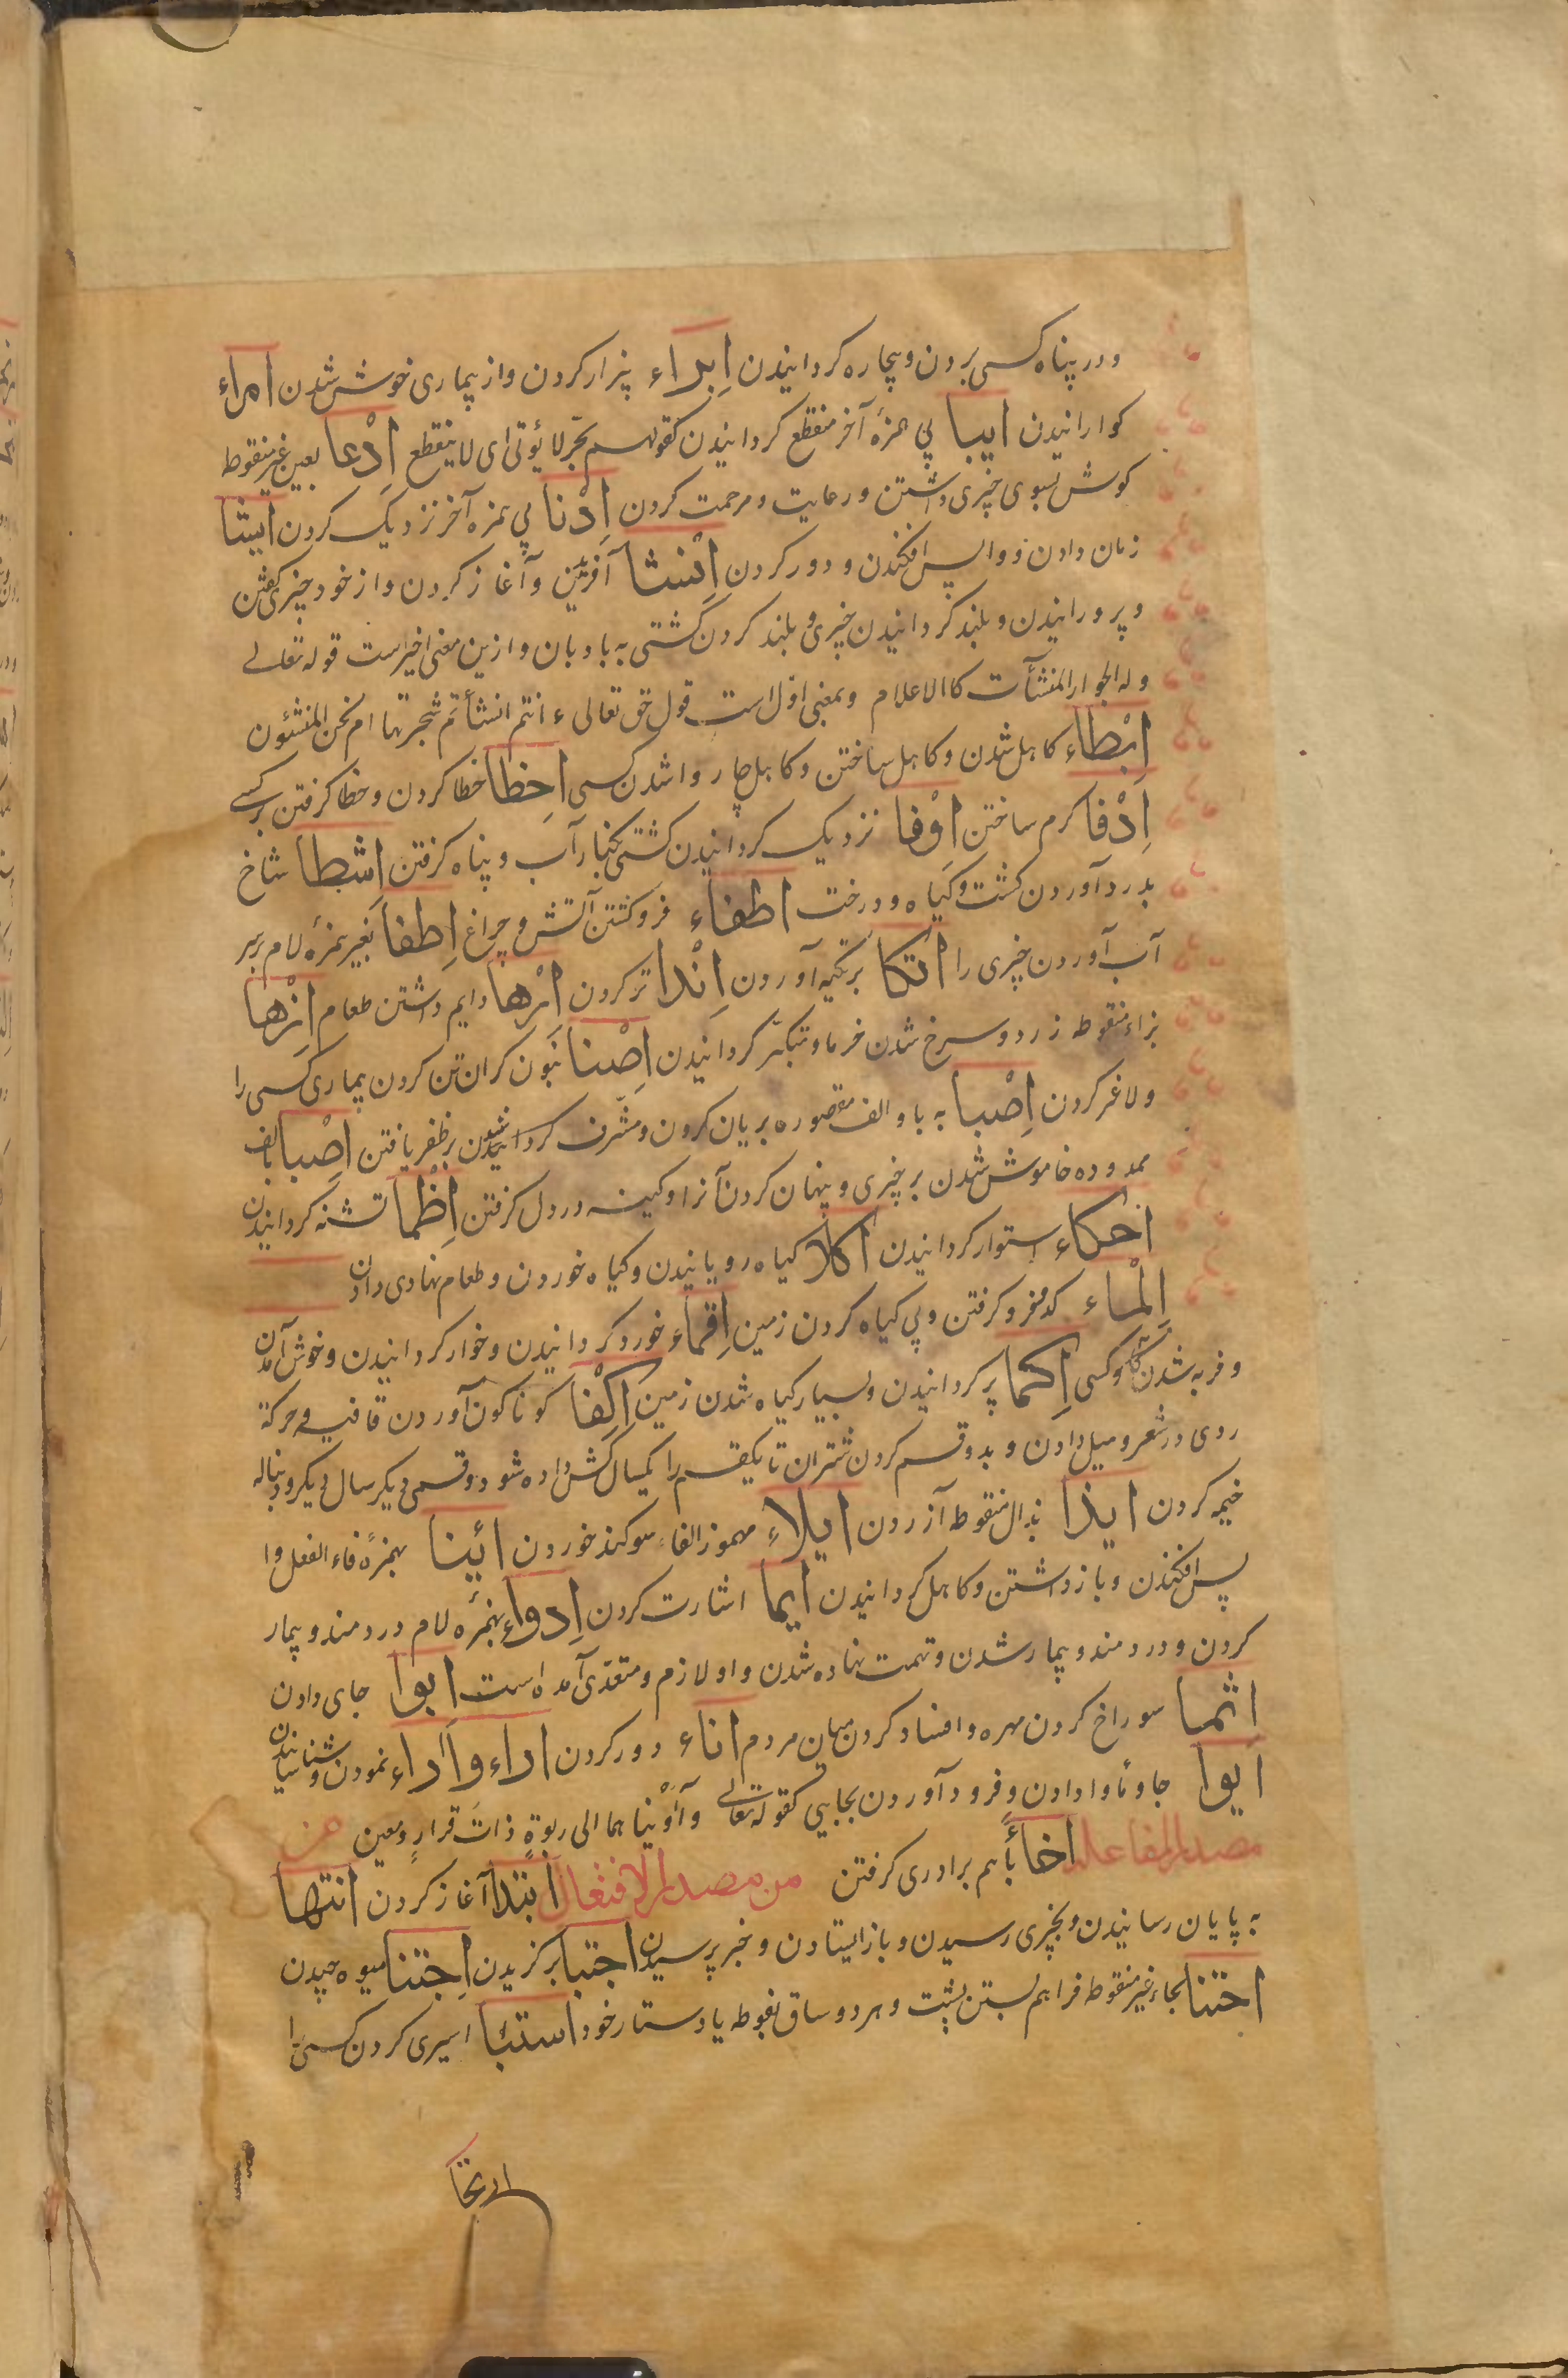 ودر پناه کسی بردن وبیچاره کردانیدن اِبراء بیزار کردن واز بیماری خوش شدن امراء
کوارانیدن ایبا بی همزهٔ آخر منقطع کردانیدن کقولهم بحر لا یؤتی ای لا ینقطع اِدْعا بعین غیر منقوطه
کوش بسوی چیزی داشتن ورعایت ومرحمت کردن اِدْنا بی همزه آخر نزدیک کردن
زمان دادن و واپس افکندن و دور کردن اِنْشا آفریدن وآغاز کردن واز خود چیزی کفتن
وپرورانیدن وبلند کردانیدن چیزی و بلند کردن کشتی به بادبان وازین معنی اخیر است قوله تعالی
وله الجوار المنشآت کالاعلام وبمعنی اول است قول حق تعالی ء انتم انشأتم شجرتها ام نحن المنشئون
اِبْطاء کاهل شدن وکاهل ساختن وکاهل چاروا شدن کسی اخطا خطا کردن وخطا کرفتن بر کسی
اِدْفا کرم ساختن اوْفا نزدیک کردانیدن کشتی بکنار آب وپناه کرفتن اشطا شاخ
بدر آوردن کشت وکیاه ودرخت اطفاء فروکشتن آتش وچراغ اِطفا بغیر همزه لام بر سر
آب آوردن چیزی را اتکا بر تکیه آوردن اِنْدا تر کردن اِرْها دایم داشتن طعام اِزْها
بزاء منقوطه زرد وسرخ شدن خرما ومتکبر کردانیدن اِصْنا بنون کران تن کردن بیماری کسی را
ولاغر کردن اِصْبا به با والف مقصوره بریان کردن ومشرف کردانیدن بر ظفر یافتن اِصْبا بالف
ممدوده خاموش شدن بر چیزی وپنهان کردن آنرا وکینه در دل کرفتن اِظْما تشنه کردانیدن
احکاء استوار کردانیدن اکلا کیاه رویانیدن وکیاه خوردن وطعام نهادی دادن
اِلْماء فرو کرفتن وبی کیاه کردن زمین اِقماء خورد کردانیدن وخوار کردانیدن وخوش آمدن
وفربه شدن کاو کسی اِکما پر کردانیدن وبسیار کیاه شدن زمین اِکْفا کوناکون آوردن قافیه وحرکة
روی در شعر ومیل دادن وبدو قسم کردن شتران تا یکقسم را یکسال کش داده شود وقسمی دیکر سال دیکر ودنباله
خیمه کردن ایذا بذال منقوطه آزردن ایلاء مهموز الفاء سوکند خوردن ائینا بهمزهٔ فاء الفعل وا
پس افکندن وبازداشتن وکاهل کردانیدن ایما اشارت کردن اِدواء بهمزه لام دردمند وبیمار
کردن ودردمند وبیمار شدن وتهمت نهاده شدن واو لازم ومتعدی آمده است ابوا جای دادن
اثما سوراخ کردن مهره وافساد کردن میان مردم اناء دور کردن اراء واَداء نمودن وشناسانیدن
ایوا جا وماوا دادن وفرود آوردن بجایی کقوله تعالی وآوینا هما الی ربوةٍ ذات قرارٍ ومعین من
مصدر المفاعلة اخاءً باهم برادری کرفتن من مصدر الافتعال ابتدا آغاز کردن انتها
به پایان رسانیدن وبچیزی رسیدن وبازایستادن وخبر پرسیدن اجتبا برکزیدن اِجتنا میوه چیدن
احتبا بحاء غیر منقوطه فراهم بستن پشت وهر دو ساق بفوطه یا دستار خود استبا اسیری کردن کسی را
ارتجا